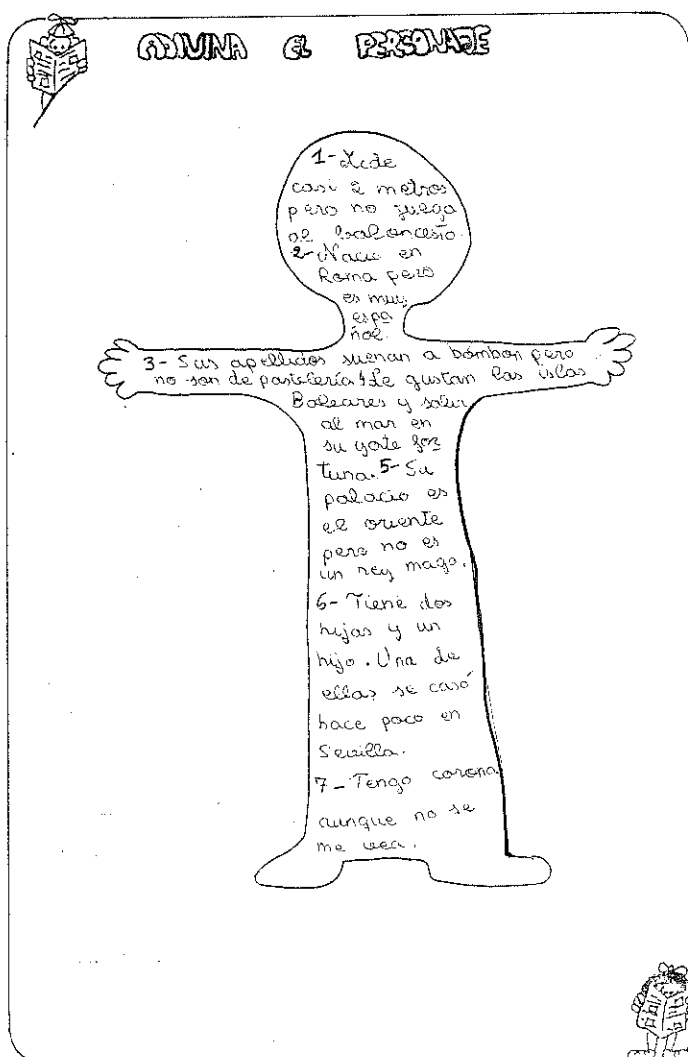 ADIVINA EL PERSONAJE
1- Mide
casi 2 metros
pero no juega
al baloncesto.
2- Nació en
Roma pero
es muy
espa
ñol.
3- Sus apellidos suenan a bombon pero
no son de pastelería 4 Le gustan las islas
Baleares y salir
al mar en
su yate for
tuna. 5- Su
palacio es
el oriente
pero no es
un rey mago.
6- Tiene dos
hijas y un
hijo. Una de
ellas se casó
hace poco en
Sevilla.
7- Tengo corona
aunque no se
me vea.